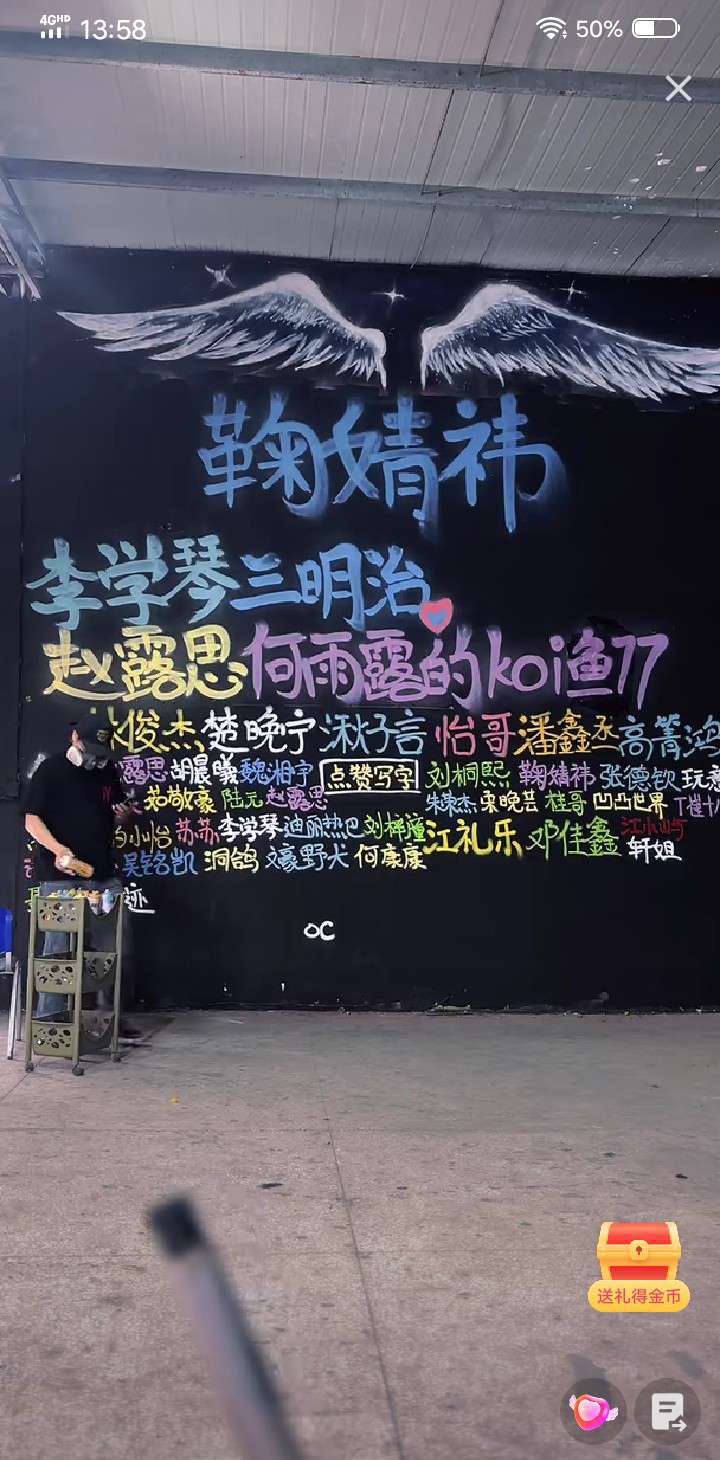 4GHD 13:58 50%
鞠婧祎
李学琴 三明治
赵露思 何雨露的koi鱼77
林俊杰 楚晚宁 湫子言 怡哥 潘鑫丞 高箐鸿
露思 胡晨曦 魏湘宇 点赞写字 刘桐熙 鞠婧祎 张德钦 玩意
茹敬豪 陆元 赵露思 朱荣杰 栗晚芸 桂哥 凹凸世界
的小怡 苏苏 李学琴 迪丽热巴 刘梓潼 江礼乐 邓佳鑫
吴铭凯 洞鸽 文豪野犬 何康康 轩姐
迹
OC
送礼得金币